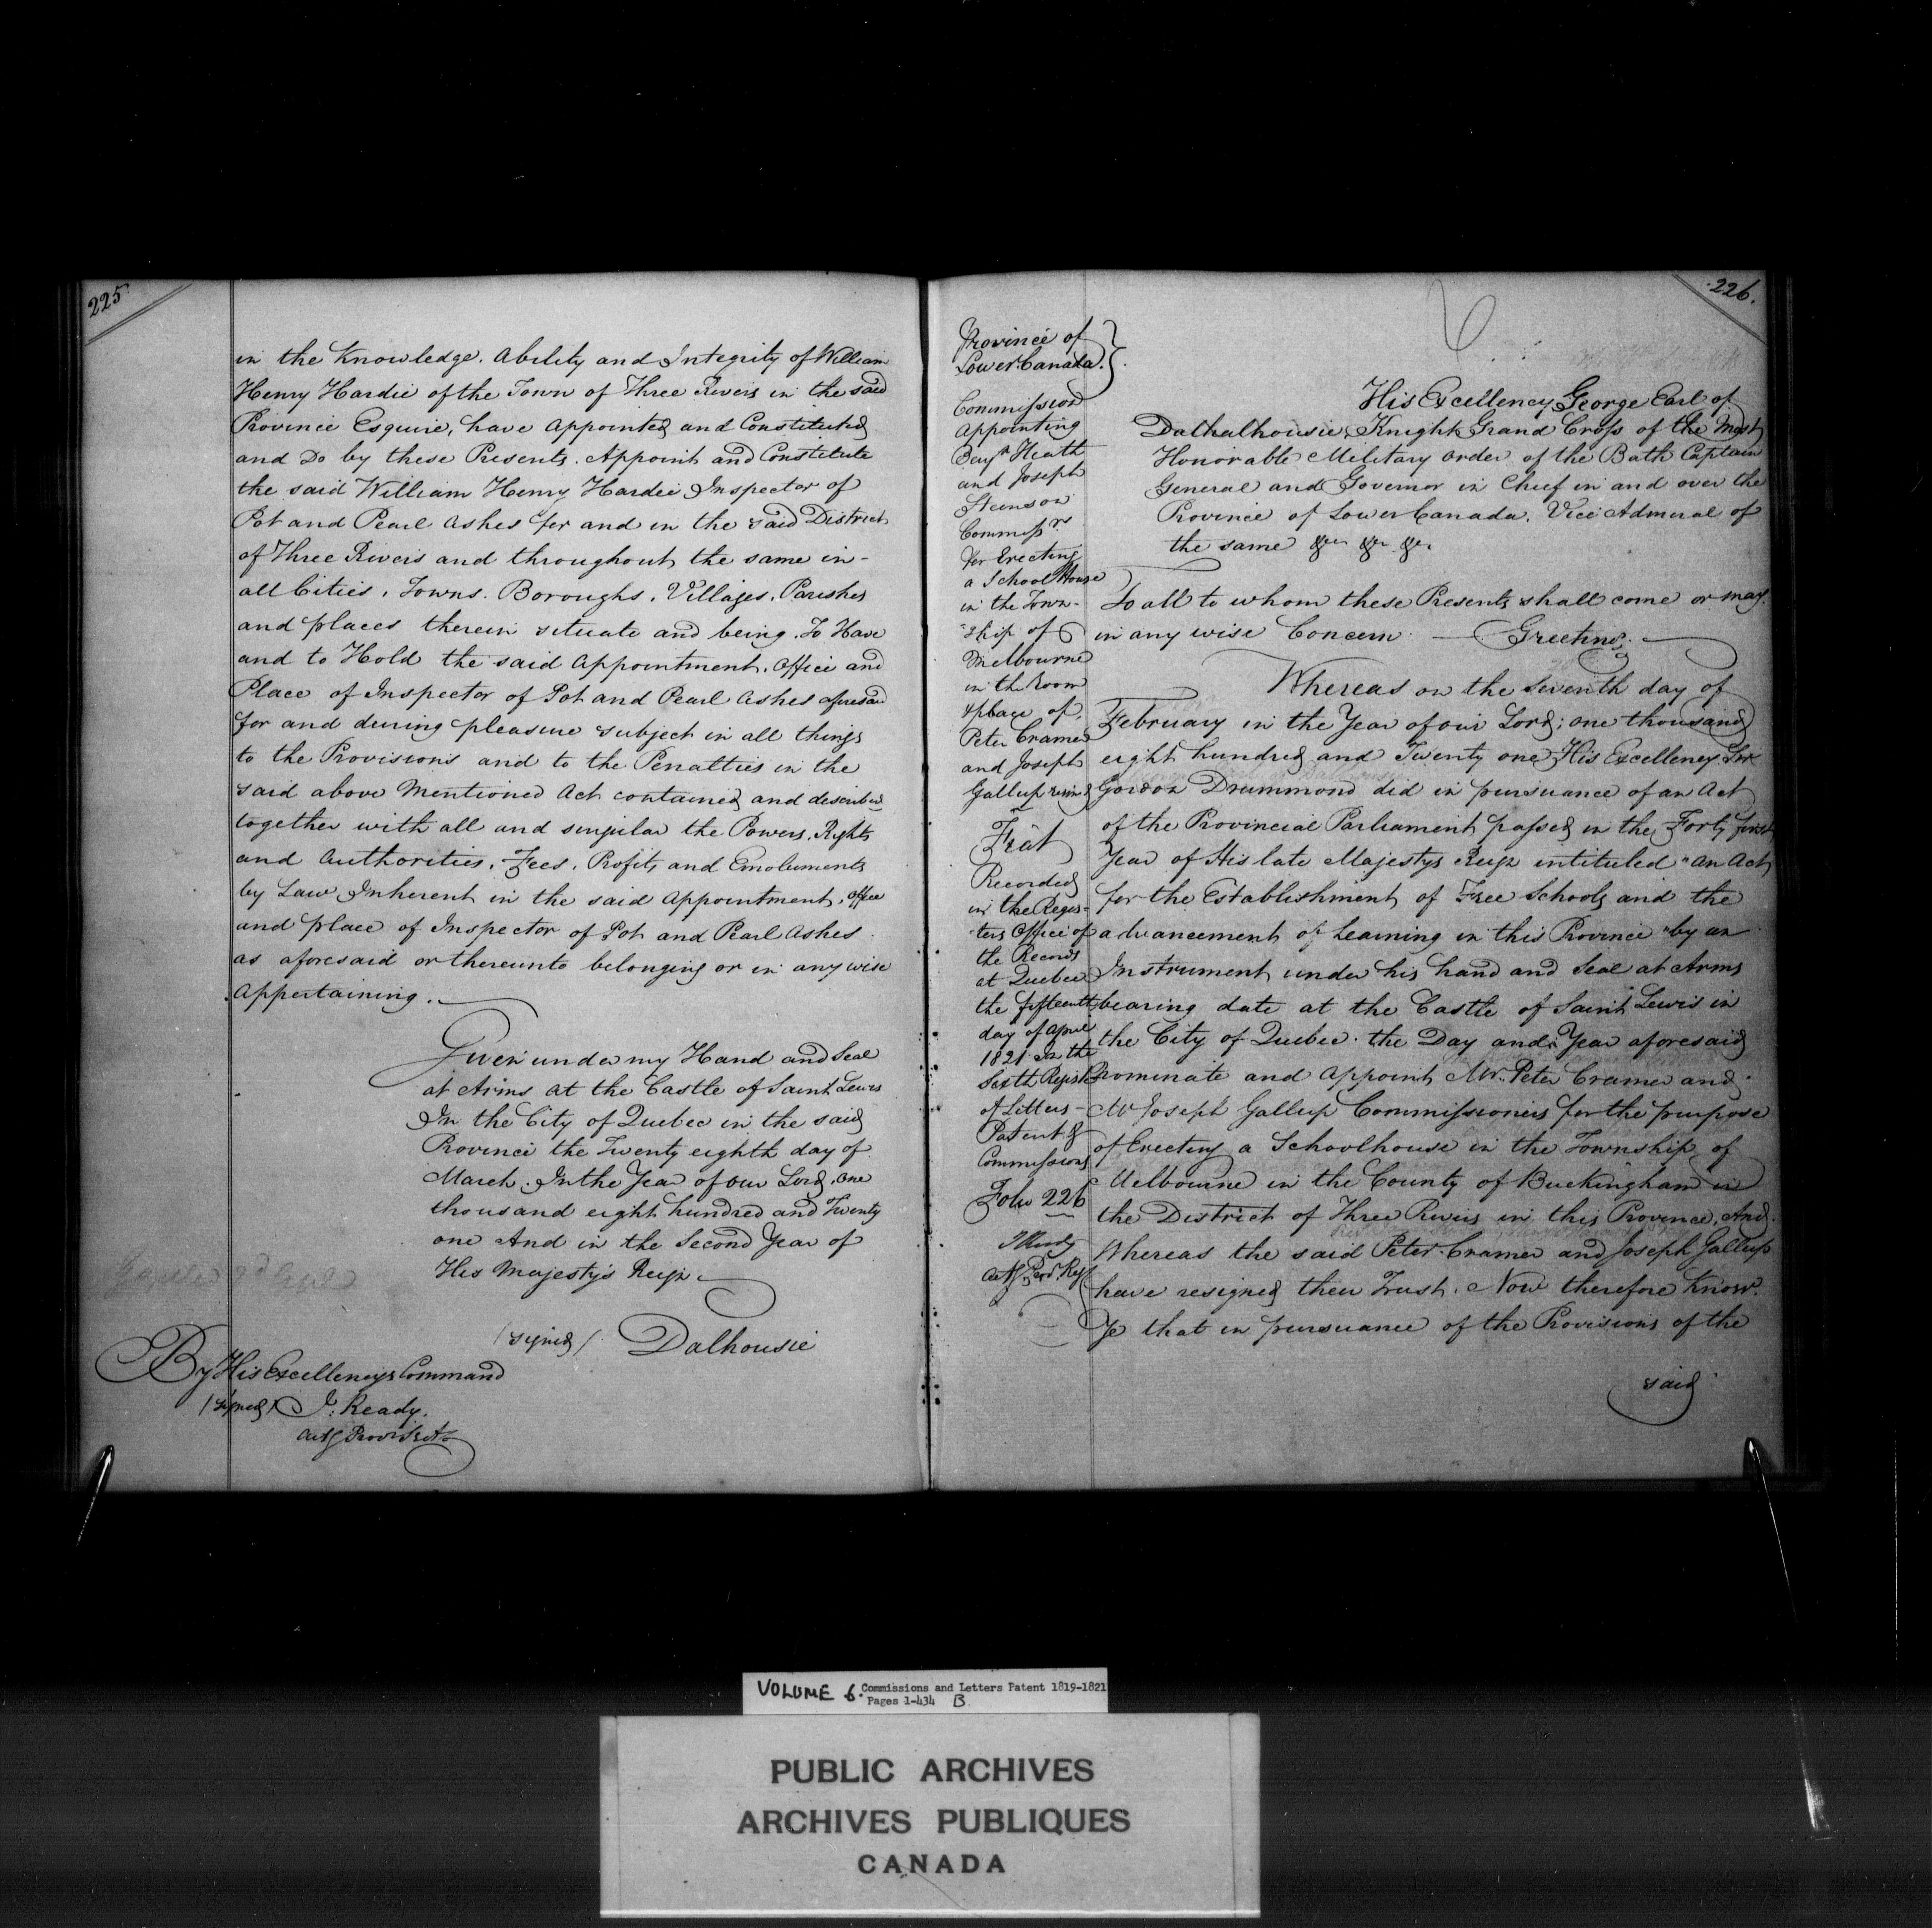 225.
in the Knowledge. Ability and Integrity of William
Henry Hardie of the Town of Three Rivers in the said
Province Esquire, have appointed and Constituted
and Do by these Presents. Appoint and Constitute
the said William Henry Hardie Inspector of
Pot and Pearl Ashes for and in the said District
of Three Rivers and throughout the same in-
all Cities, Towns. Boroughs. Villages. Parishes
and places therein situate and being. To Have
and to Hold the said Appointment. Office and
Place of Inspector of Pot and Pearl Ashes aforesaid
for and during pleasure subject in all things
to the Provisions and to the Penalties in the
said above Mentioned Act contained and described
together with all and singular the Powers. Rights
and Authorities. Fees. Profits and Emoluments
by Law Inherent in the said Appointment. Office
and place of Inspector of Pot and Pearl Ashes
as aforesaid or thereunto belonging or in any wise
Appertaining.
Given under my Hand and Seal
at Arms at the Castle of Saint Lewis
In the City of Quebec in the said
Province the Twenty eighth day of
March. In the Year of our Lord. one
thousand eight hundred and Twenty
one And in the Second Year of
His Majesty's Reign
(signed) Dalhousie
By His Excellencys Command
(signed) J: Ready.
Actg Prov: Secty
226.
Province of
Lower Canada.
Commission
Appointing
Heath
and Joseph
Stimson
Commissrs
for Erecting
a School House
in the Town-
-ship of
Melbourne
in the Room
& place of
Peter Cramer
and Joseph
Gallup
Fiat
Recorded
in the Regis-
ters Office of
the Records
at Quebec
the fifteenth
day of April
1821 In the
Sixth Register
of Letters-
Patent &
Commissions
Folio 226
J Ready
Actg Provl Regr
His Excellency George Earl of
Dalhalhousie, Knight Grand Cross of the Most
Honorable Military Order of the Bath Captain
General and Governor in Chief in and over the
Province of Lower Canada. Vice Admiral of
the same &c. &c. &c.
To all to whom these Presents shall come or may
in any wise Concern. Greeting.
Whereas on the Seventh day of
February in the Year of our Lord; one thousand
eight hundred and Twenty one His Excellency Sir
Gordon Drummond did in pursuance of an Act
of the Provincial Parliament passed in the Forty first
Year of His late Majestys Reign intituled "An Act
for the Establishment of Free Schools and the
advancement of Learning in this Province "by an
Instrument under his hand and Seal at Arms
bearing date at the Castle of Saint Lewis in
the City of Quebec. the Day and Year aforesaid
nominate and appoint Mr. Peter Cramer and
Mr Joseph Gallup Commissioners for the purpose
of Erecting a Schoolhouse in the Township of
Melbourne in the County of Buckingham in
the District of Three Rivers in this Province. And
Whereas the said Peter Cramer and Joseph Gallup
have resigned their Trust. Now therefore Know
Ye that in pursuance of the Provisions of the
said
VOLUME 6. Commissions and Letters Patent 1819-1821
Pages 1-434 B
PUBLIC ARCHIVES
ARCHIVES PUBLIQUES
CANADA